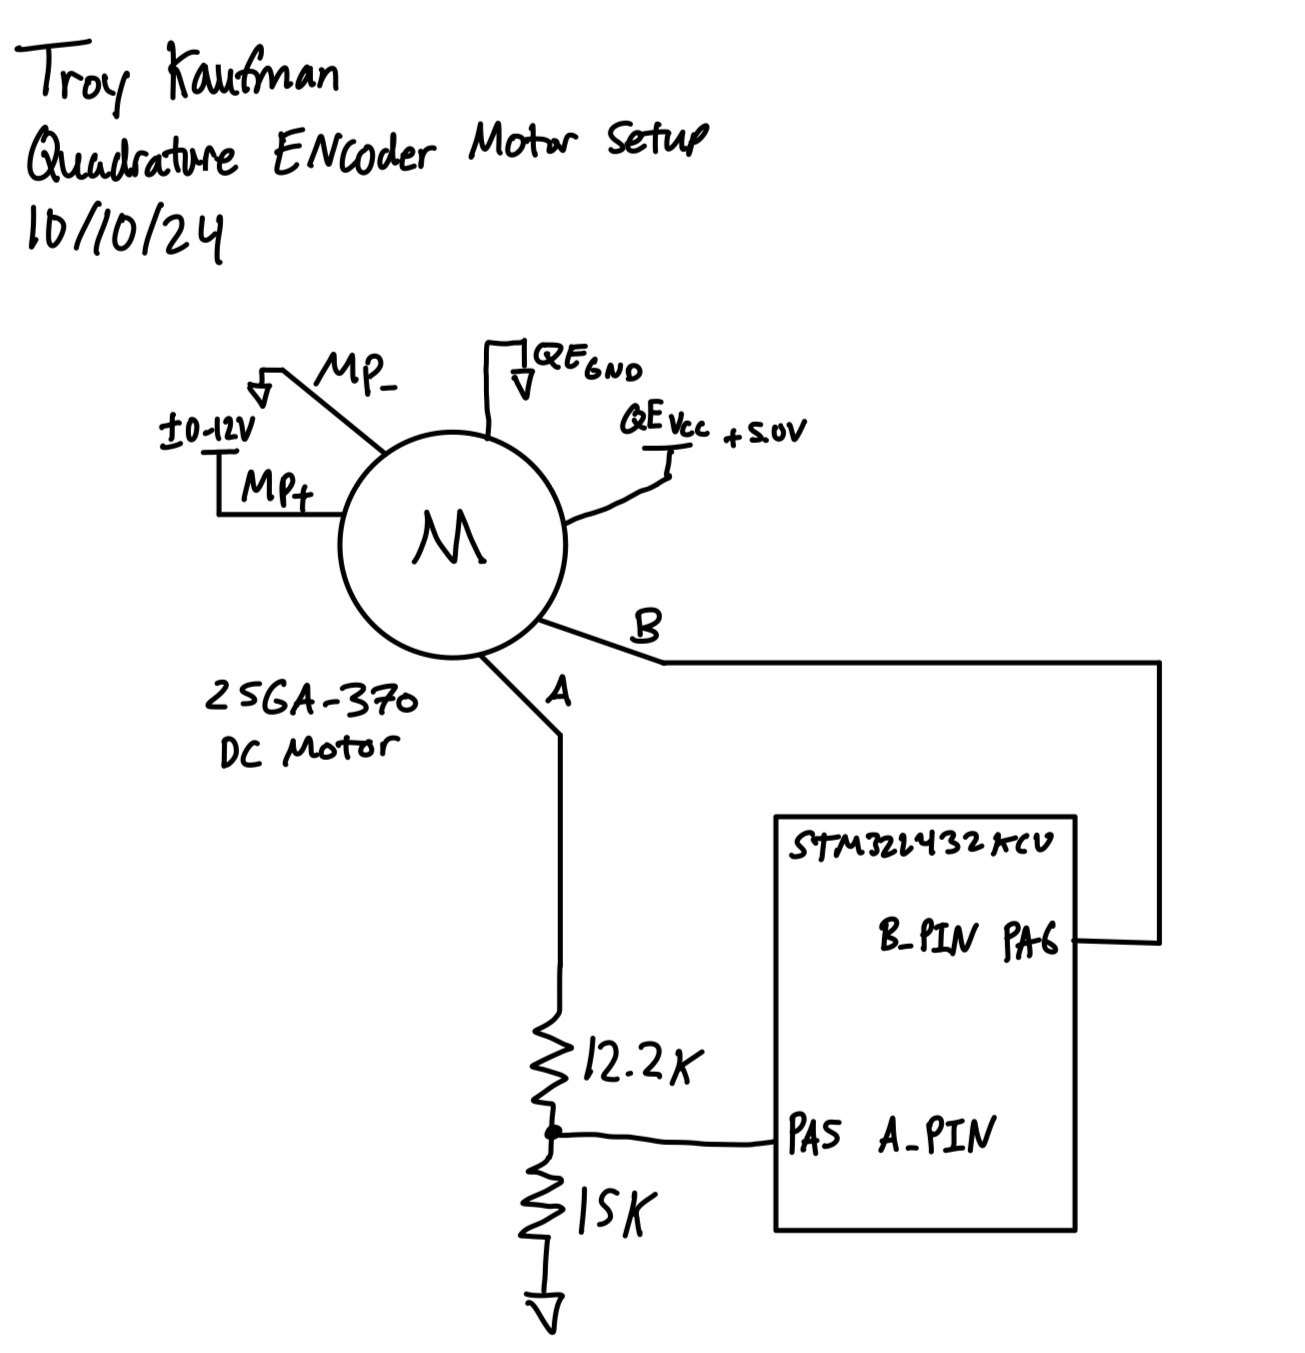 Troy Kaufman
Quadrature ENcoder Motor Setup
10/10/24
MP-
QEGND
±0-12V
QEVCC +5.0V
MP+
M
B
A
25GA-370
DC Motor
STM32L432KCU
B_PIN PA6
12.2K
PA5 A_PIN
15K